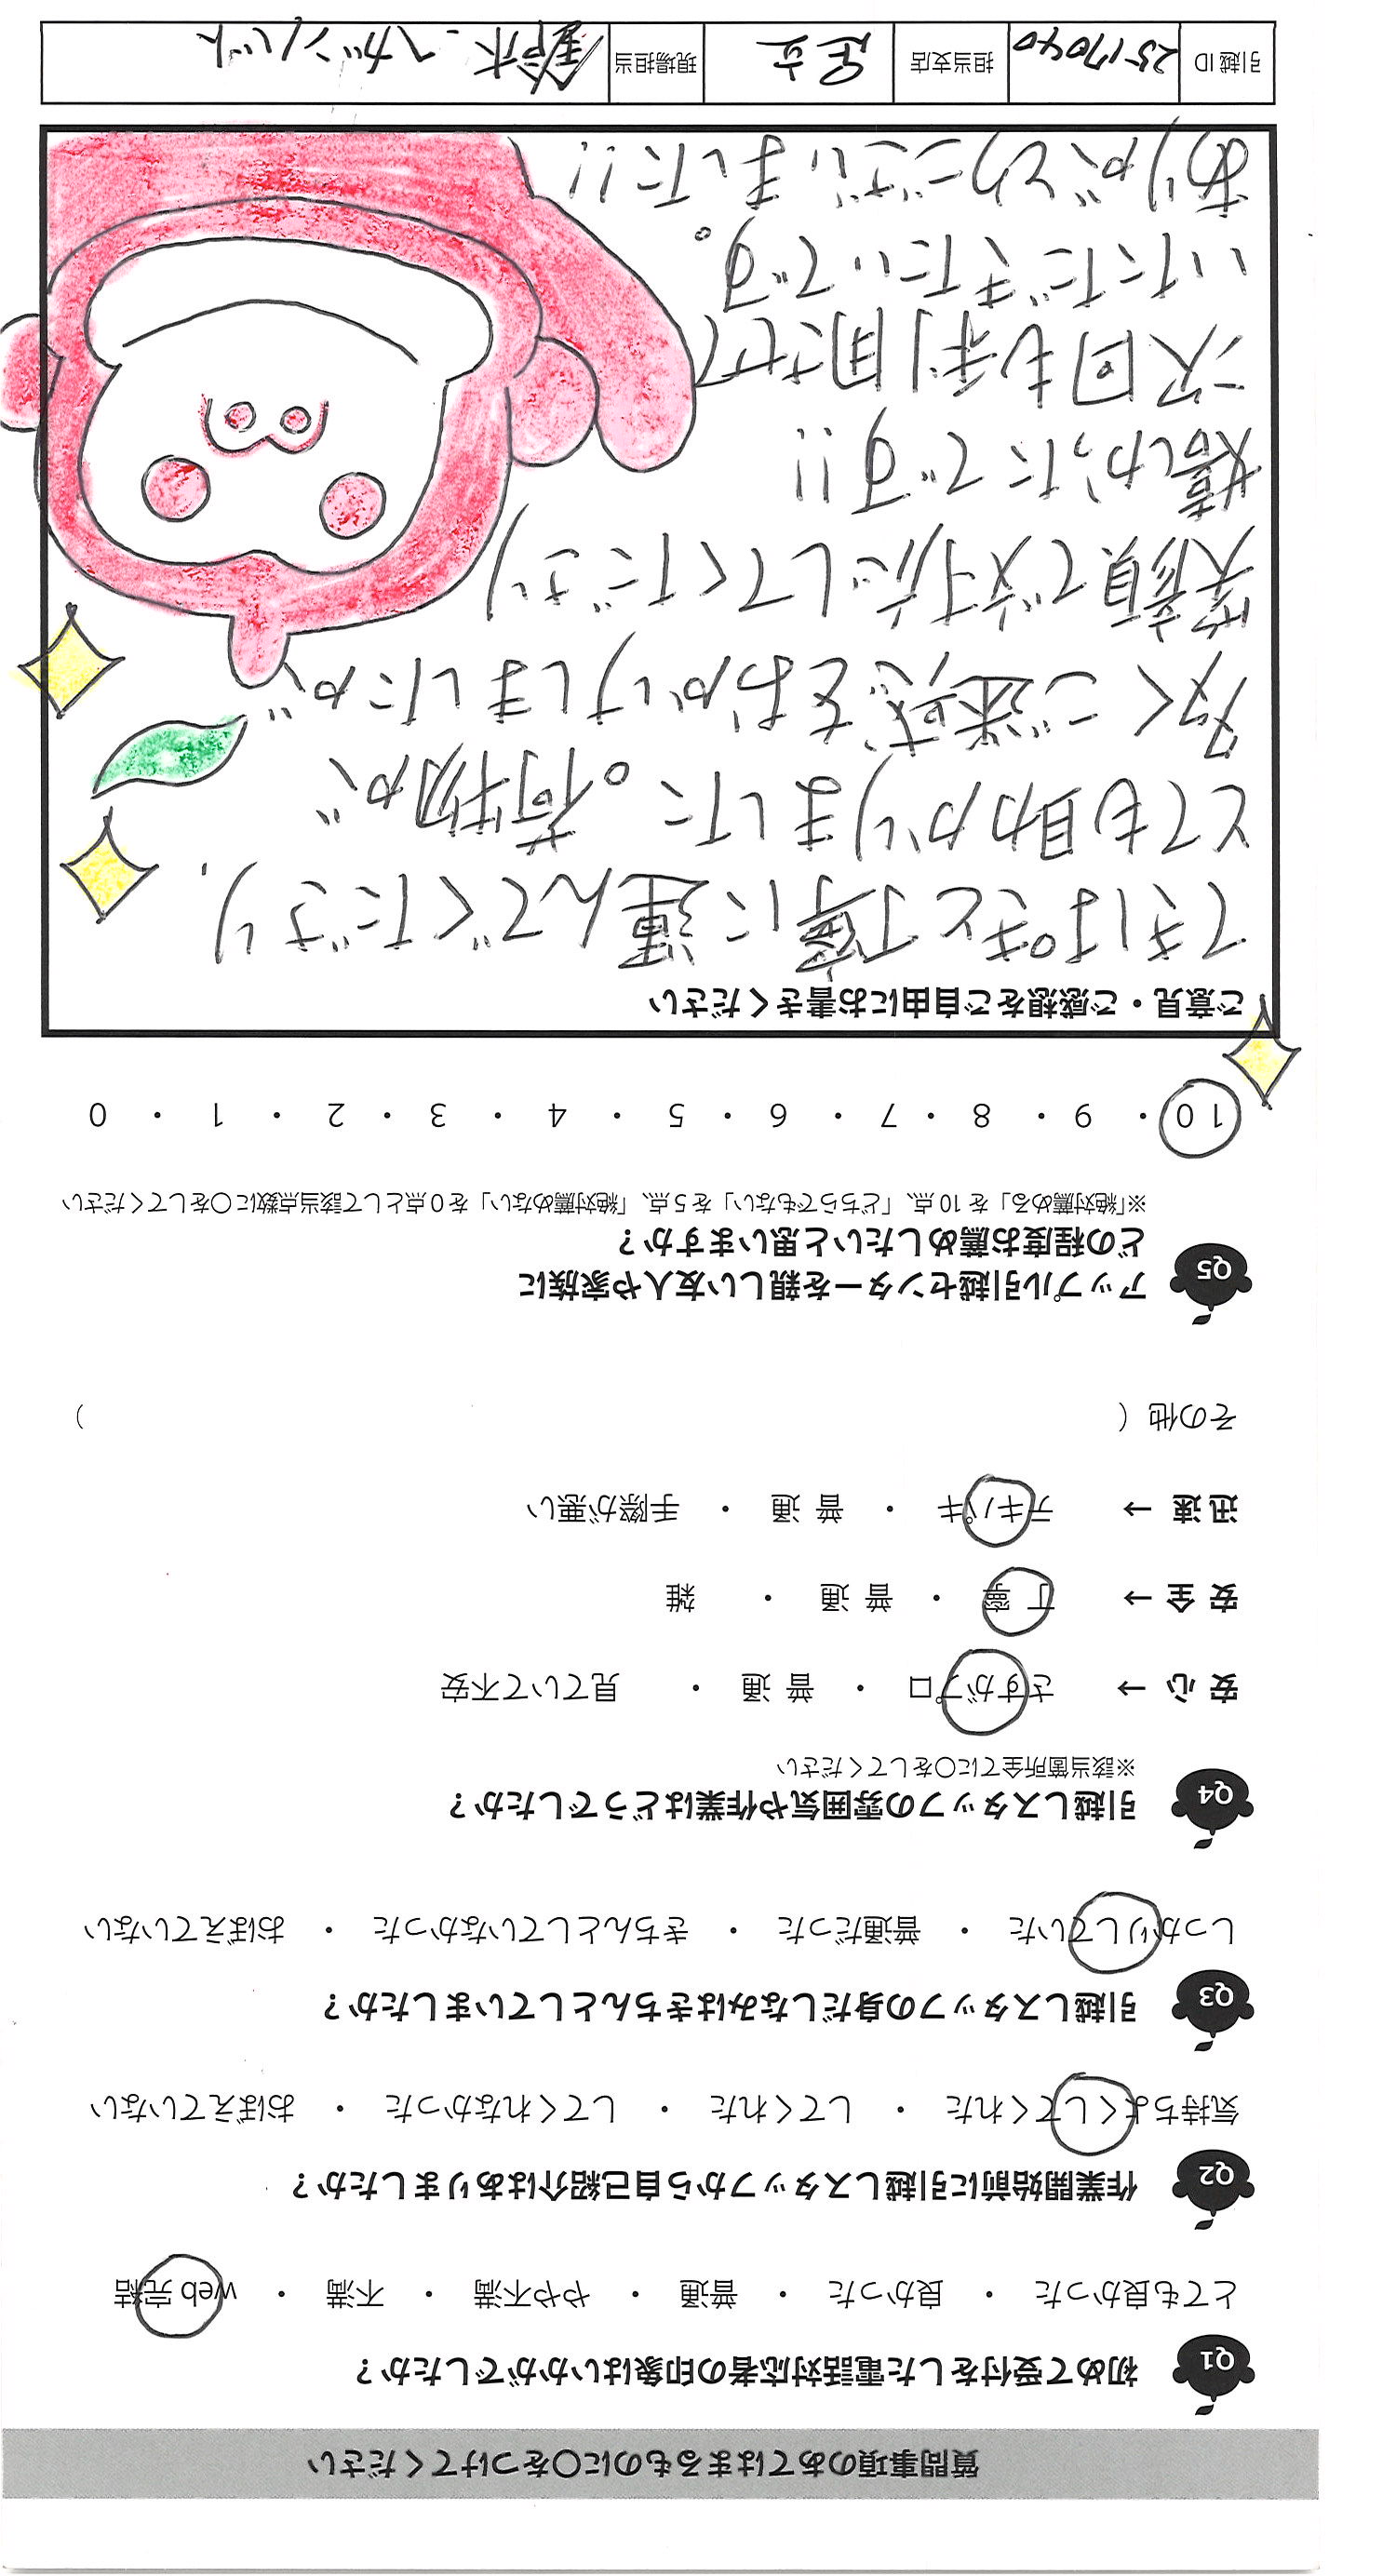 質問事項のあてはまるものに〇をつけてください
Q1 初めて受付をした電話対応者の印象はいかがでしたか？
とても良かった ・ 良かった ・ 普通 ・ やや不満 ・ 不満 ・ web 完結
Q2 作業開始前に引越しスタッフから自己紹介はありましたか？
気持ちよくしてくれた ・ してくれた ・ してくれなかった ・ おぼえていない
Q3 引越しスタッフの身だしなみはきちんとしていましたか？
しっかりしていた ・ 普通だった ・ きちんとしていなかった ・ おぼえていない
Q4 引越しスタッフの雰囲気や作業はどうでしたか？
※該当箇所全てに〇をしてください
安 心 → さすがプロ ・ 普 通 ・ 見ていて不安
安 全 → 丁 寧 ・ 普 通 ・ 雑
迅 速 → テキパキ ・ 普 通 ・ 手際が悪い
その他（ ）
Q5 アップル引越センターを親しい友人や家族に
どの程度お薦めしたいと思いますか？
※「絶対薦める」を 10 点、「どちらでもない」を 5 点、「絶対薦めない」を 0 点として該当点数に〇をしてください
10 ・ 9 ・ 8 ・ 7 ・ 6 ・ 5 ・ 4 ・ 3 ・ 2 ・ 1 ・ 0
ご意見・ご感想をご自由にお書きください
てきぱきと丁寧に運んでくださり、
とても助かりました。荷物が
多くご迷惑をおかけしましたが
笑顔で対応してくださり
嬉しかったです!!
次回も利用させて
いただきたいです。
ありがとうございました!!
引越 ID 2517040 担当支店 足立 現場担当 鈴木.